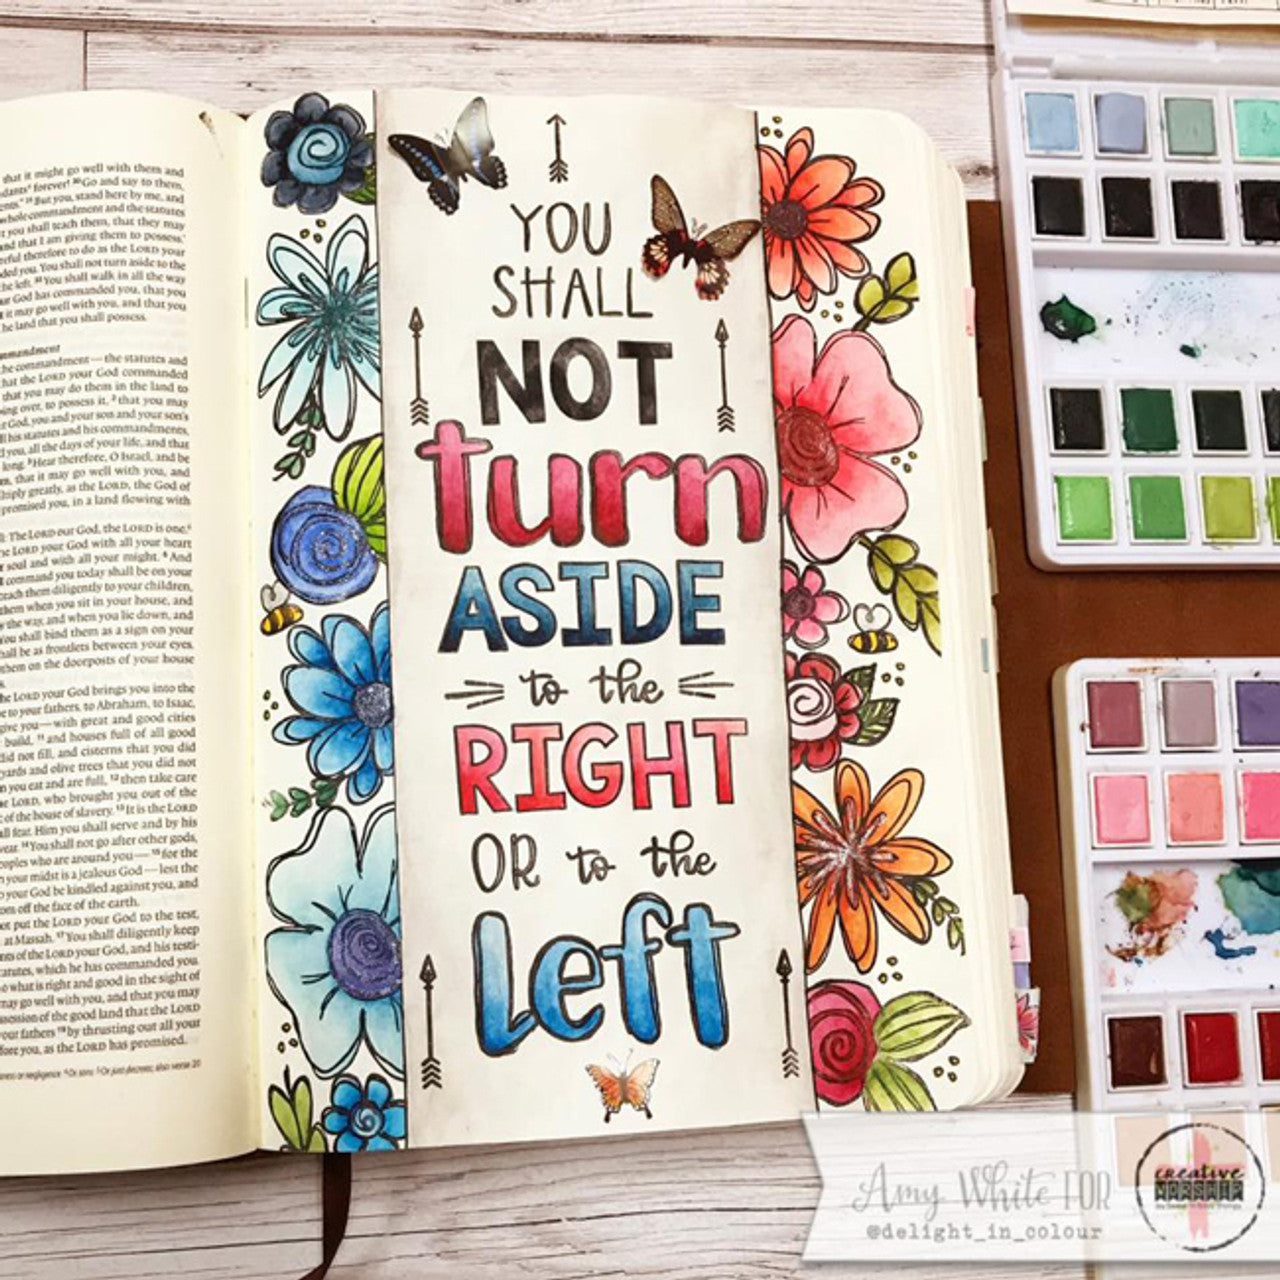 that it might go well with them and
forever! Go and say to them,
But you, stand here by me, and
whole commandment and the statutes
you shall teach them, that they may
that I am giving them to possess.
therefore to do as the LORD your
You shall not turn aside to the
left. You shall walk in all the way
God has commanded you, that you
it may go well with you, and that you
the land that you shall possess.
the commandment—the statutes and
that the LORD your God commanded
that you may do them in the land to
going over, to possess it, that you may
God, you and your son and your son's
his statutes and his commandments,
you, all the days of your life, and that
long. Hear therefore, O Israel, and be
that it may go well with you, and
multiply greatly, as the LORD, the God of
promised you, in a land flowing with
The LORD our God, the LORD is one.
the LORD your God with all your heart
soul and with all your might. And
command you today shall be on your
teach them diligently to your children,
them when you sit in your house, and
by the way, and when you lie down, and
You shall bind them as a sign on your
shall be as frontlets between your eyes.
them on the doorposts of your house
the LORD your God brings you into the
to your fathers, to Abraham, to Isaac,
give you—with great and good cities
build, and houses full of all good
did not fill, and cisterns that you did
vineyards and olive trees that you did not
you eat and are full, then take care
LORD, who brought you out of the
of the house of slavery. It is the LORD
fear. Him you shall serve and by his
swear. You shall not go after other gods,
peoples who are around you— for the
your midst is a jealous God—lest the
your God be kindled against you, and
off the face of the earth.
not put the LORD your God to the test,
at Massah. You shall diligently keep
of the LORD your God, and his testi-
statutes, which he has commanded you.
what is right and good in the sight of
may go well with you, and that you may
possession of the good land that the LORD
your fathers by thrusting out all your
before you, as the LORD has promised.
YOU
SHALL
NOT
turn
ASIDE
to the
RIGHT
OR to the
Left
Amy White FOR
@delight_in_colour
creative
WORSHIP